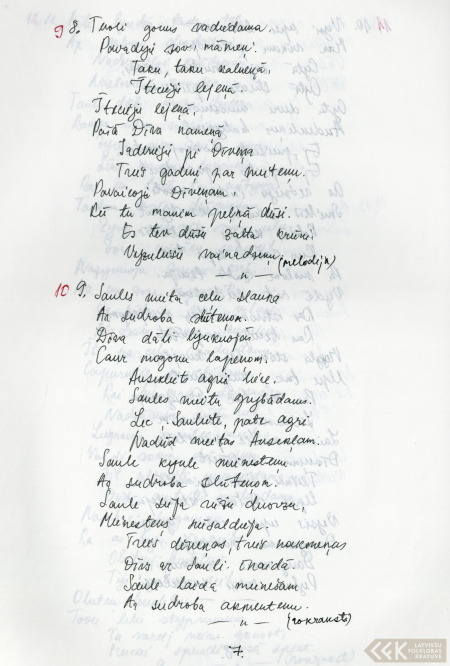 9 8. Tvoli gonus vadīdama,
Pavadeji sov' māmeņ'.
Taku, taku kalneņā,
Ītecieju lejeņā.
Ītecieju lejeņā,
Pošā Dīva nameņā
Īderieju pi Dīveņa
Treis gadeni par meitenu.
Pavaicoju Dīveņam,
Kū tu maņim peļņā dūsi.
Es tev dūšu zalta krūni
vaiņadzeņu (melodija)
— " —
10 9. Saules meita celu slauka
Ar sudroba slūteņom.
Dīva dāli
Caur mogonu lapenom.
Ausekleits agri lēce,
Saules meitu grybādams.
Lec, Sauleite, pate agri
Nadūd meitas Ausekļam.
Saule kyule mienesteņu
Ar sudroba slūteņom.
Saule sēja rūžu duorzu,
Mienestens nūsaldieja.
Treis dīneņas, treis nakteņas
Dīvs ar Sauli īnaidā.
Saule laida mienešam
Ar sudroba akmentenu.
— " — (rokraksts)
7.
LATVIEŠU FOLKLORAS KRĀTUVE